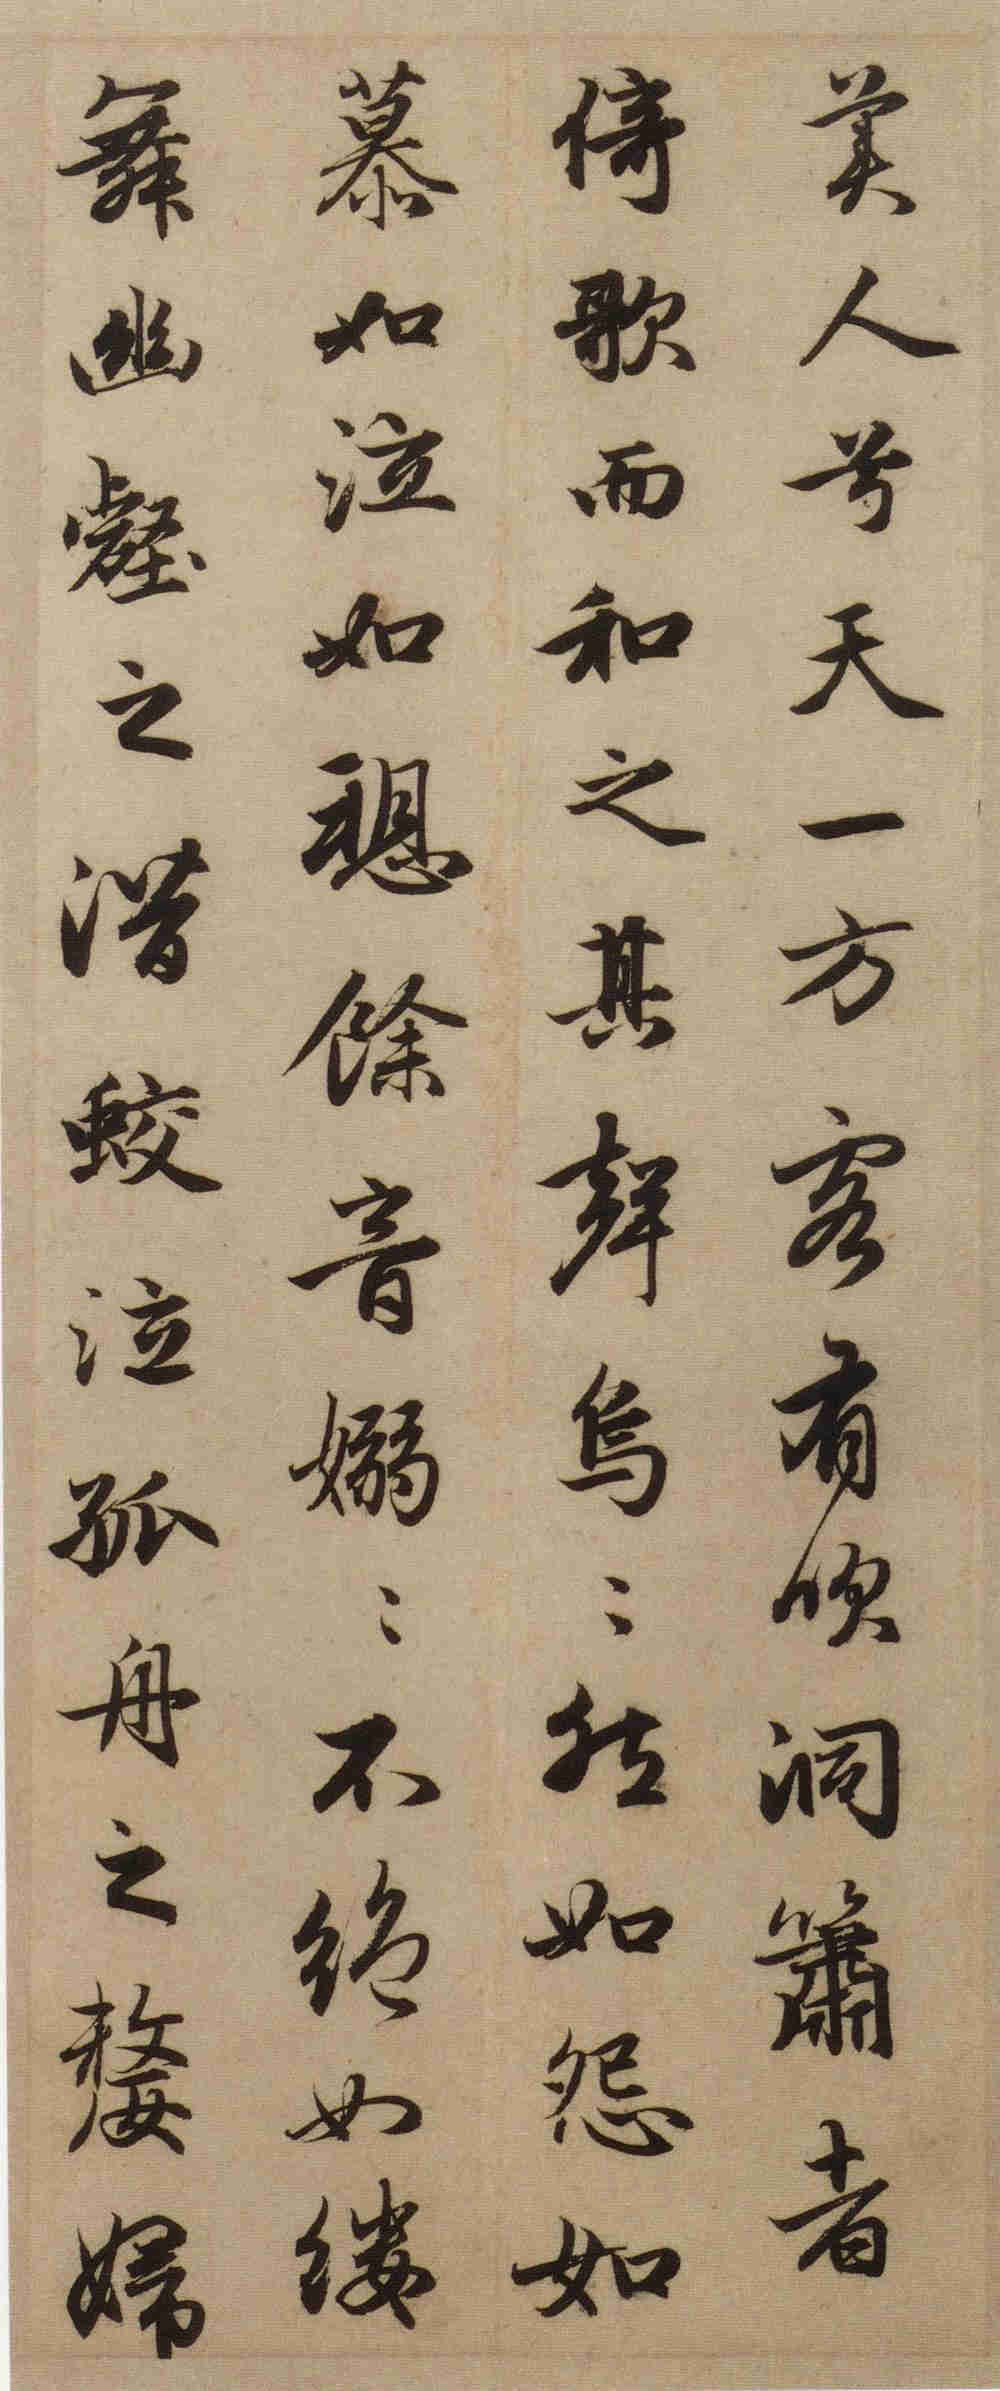 美人兮天一方客有吹洞簫者
倚歌而和之其聲烏〻然如怨如
慕如泣如聽餘音嫋〻不絕如縷
舞幽壑之潛蛟泣孤舟之嫠婦